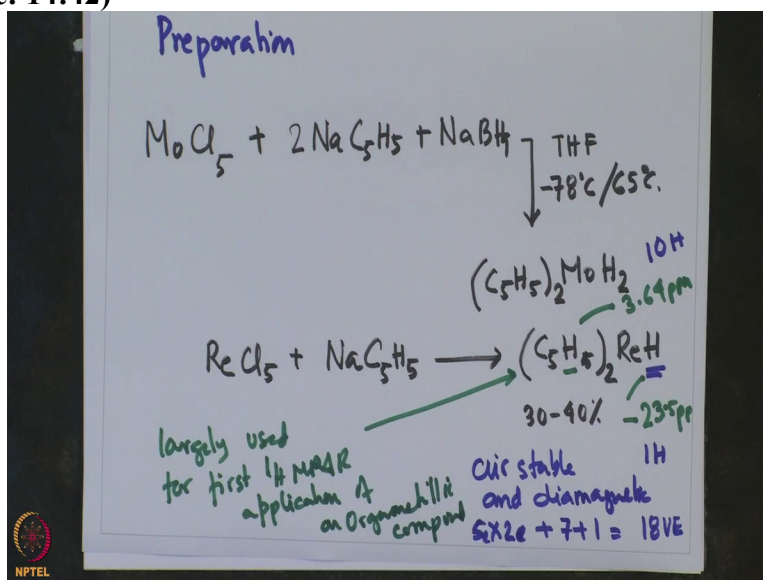 Preparation
MoCl5 + 2NaC5H5 + NaBH4
THF
-78°C/65°C.
(C5H5)2MoH2
10H
3.64ppm
ReCl5 + NaC5H5 → (C5H5)2ReH
30-40%
-23.5pp
1H
largely used
for first 1H NMR
application of
an Organometallic
compound
air stable
and diamagnetic
5x2e + 7+1 = 18VE
NPTEL